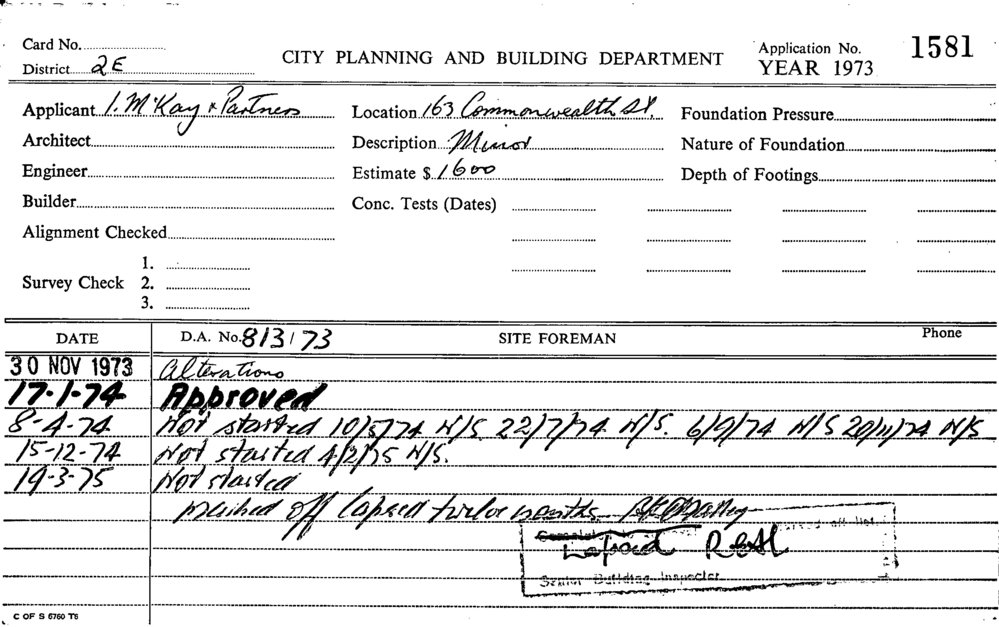 Card No.
CITY PLANNING AND BUILDING DEPARTMENT
Application No. 1581
District 2E
YEAR 1973
Applicant I. McKay & Partners Location 163 Commonwealth St. Foundation Pressure
Architect Description Minor Nature of Foundation
Engineer Estimate $ 1600 Depth of Footings
Builder Conc. Tests (Dates)
Alignment Checked
1.
Survey Check 2.
3.
DATE D.A. No. 813/73 SITE FOREMAN Phone
30 NOV 1973 Alterations
17-1-74 Approved
8-4-74 Not started 10/5/74 N/S 22/7/74 N/S. 6/9/74 N/S 20/11/74 N/S
15-12-74 Not started 4/2/75 N/S.
19-3-75 Not started
marked off lapsed twelve months
Lapsed
Senior Building Inspector
C OF S 5760 T6